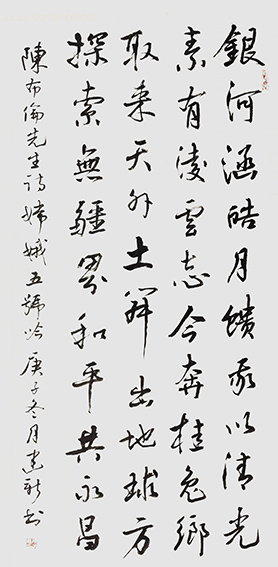 銀河涵皓月饋我以清光
素有凌雲志今奔桂兔鄉
取来天外土解出地球方
探索無疆界和平共永昌
陳布倫先生诗嫦娥五號吟庚子冬月建新书